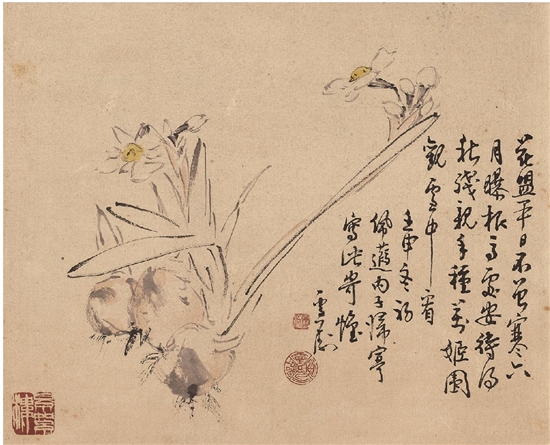 花盟平日不曾寒六
月曝根高處安待得
秋殘親手種萬姬圍
觀雪中看
壬申冬初
佩蘧內子歸寧
寫此寄懷